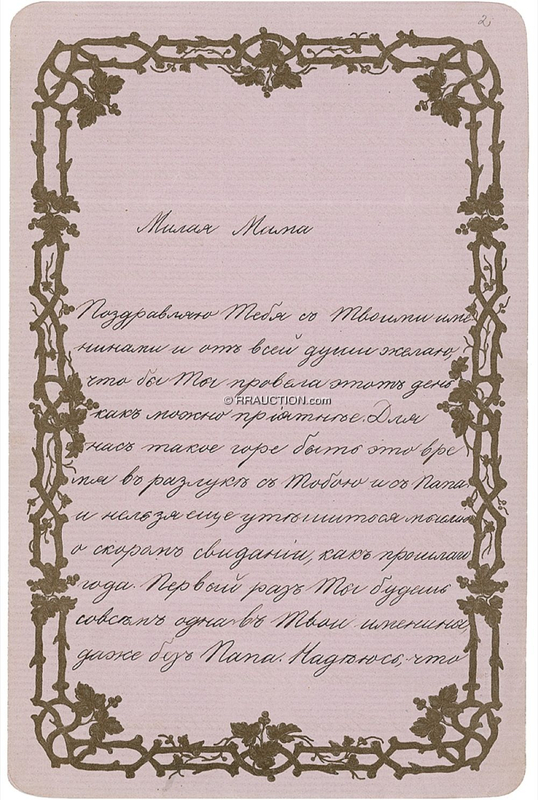 2
Милая Мама
Поздравляю Тебя съ Твоими име
нинами и отъ всей души желаю,
что бы Ты провела этотъ день
© RRAUCTION.com
какъ можно пріятнѣе. Для
насъ такое горе быть это вре
мя въ разлукѣ съ Тобою и съ Папа
и нельзя еще утѣшиться мыслью
о скоромъ свиданіи, какъ прошлаго
года. Первый разъ Ты будешь
совсѣмъ одна въ Твои именины,
даже безъ Папа. Надѣюсь, что